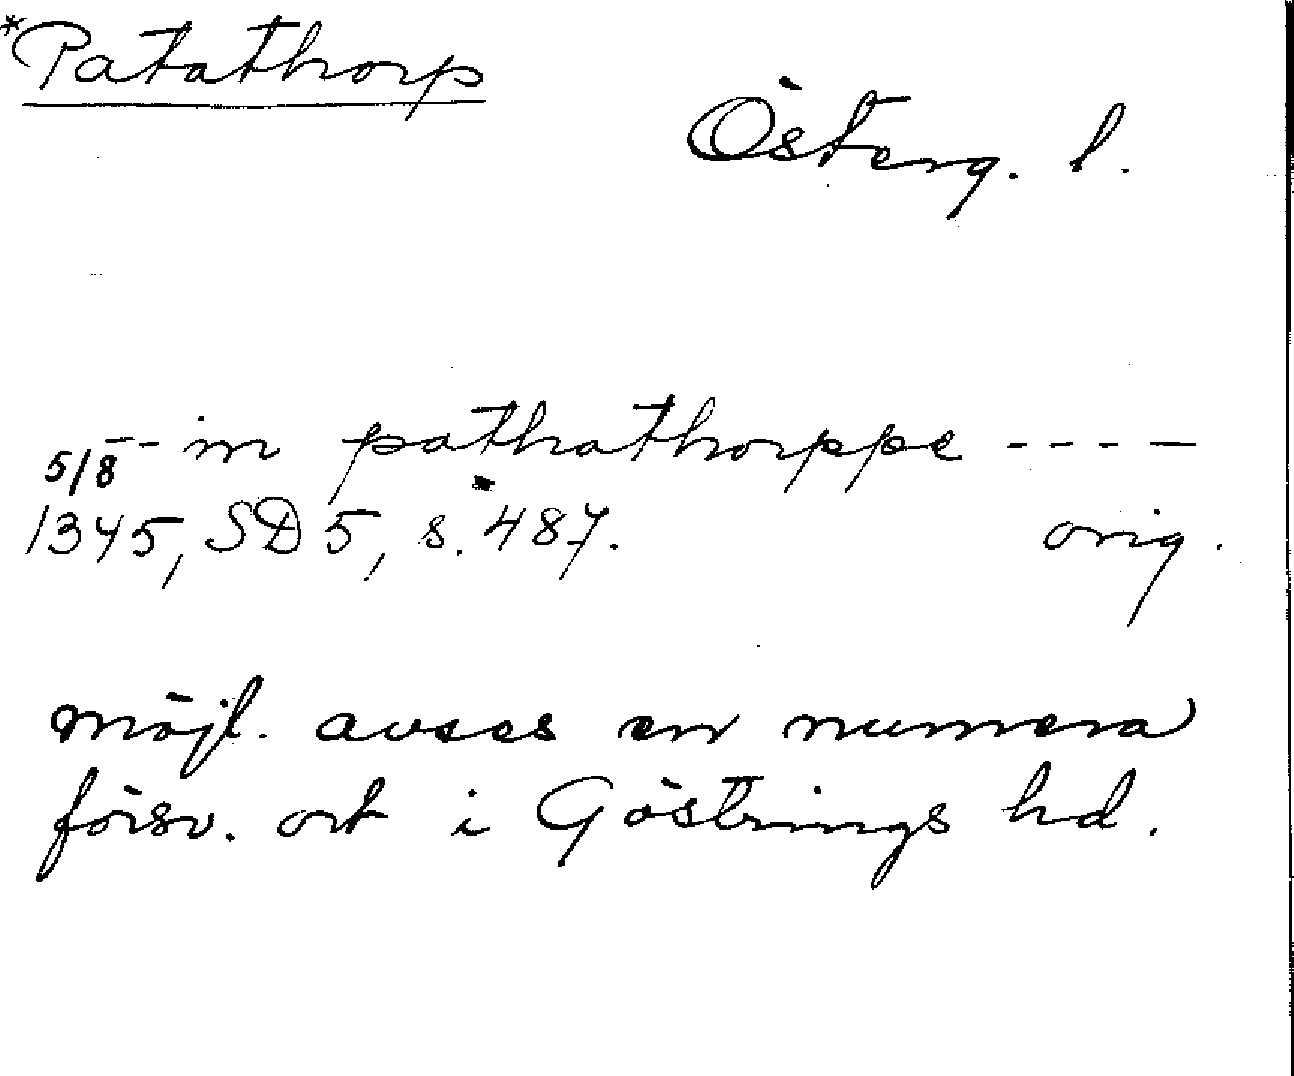 *Patathorp
Österg. l.
-- in pathathorppe ----
5/8
1345, SD 5, s. 487. orig.
möjl. avses en numera
försv. ort i Göstrings hd.